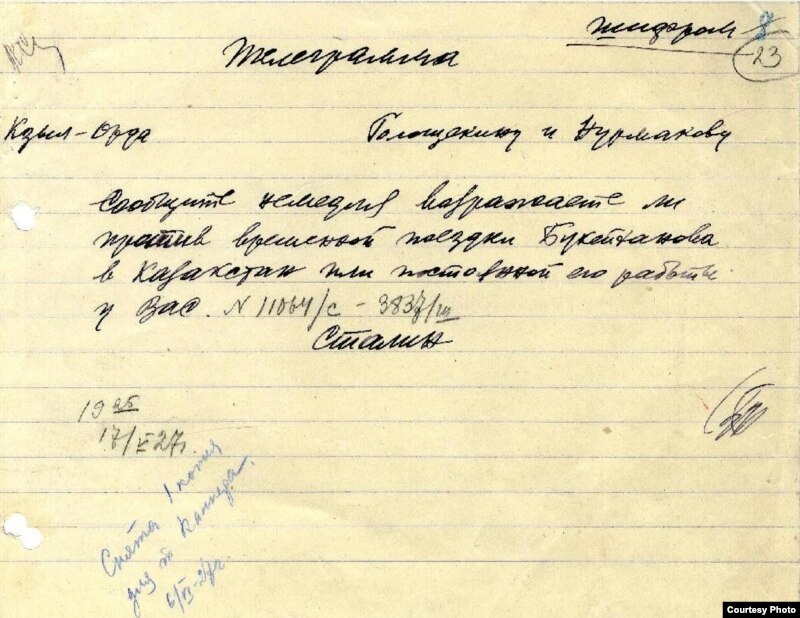 шифром
23
Телеграмма
Кзыл-Орда Голощекину и Нурмакову
Сообщите немедля возражаете ли
против временной поездки Букейханова
в Казакстан или постоянной его работы
у Вас. N 11064/с - 3837/ш
Сталин
19 25
17/X 27г.
Снята 1 копия
для т Каннера.
Courtesy Photo